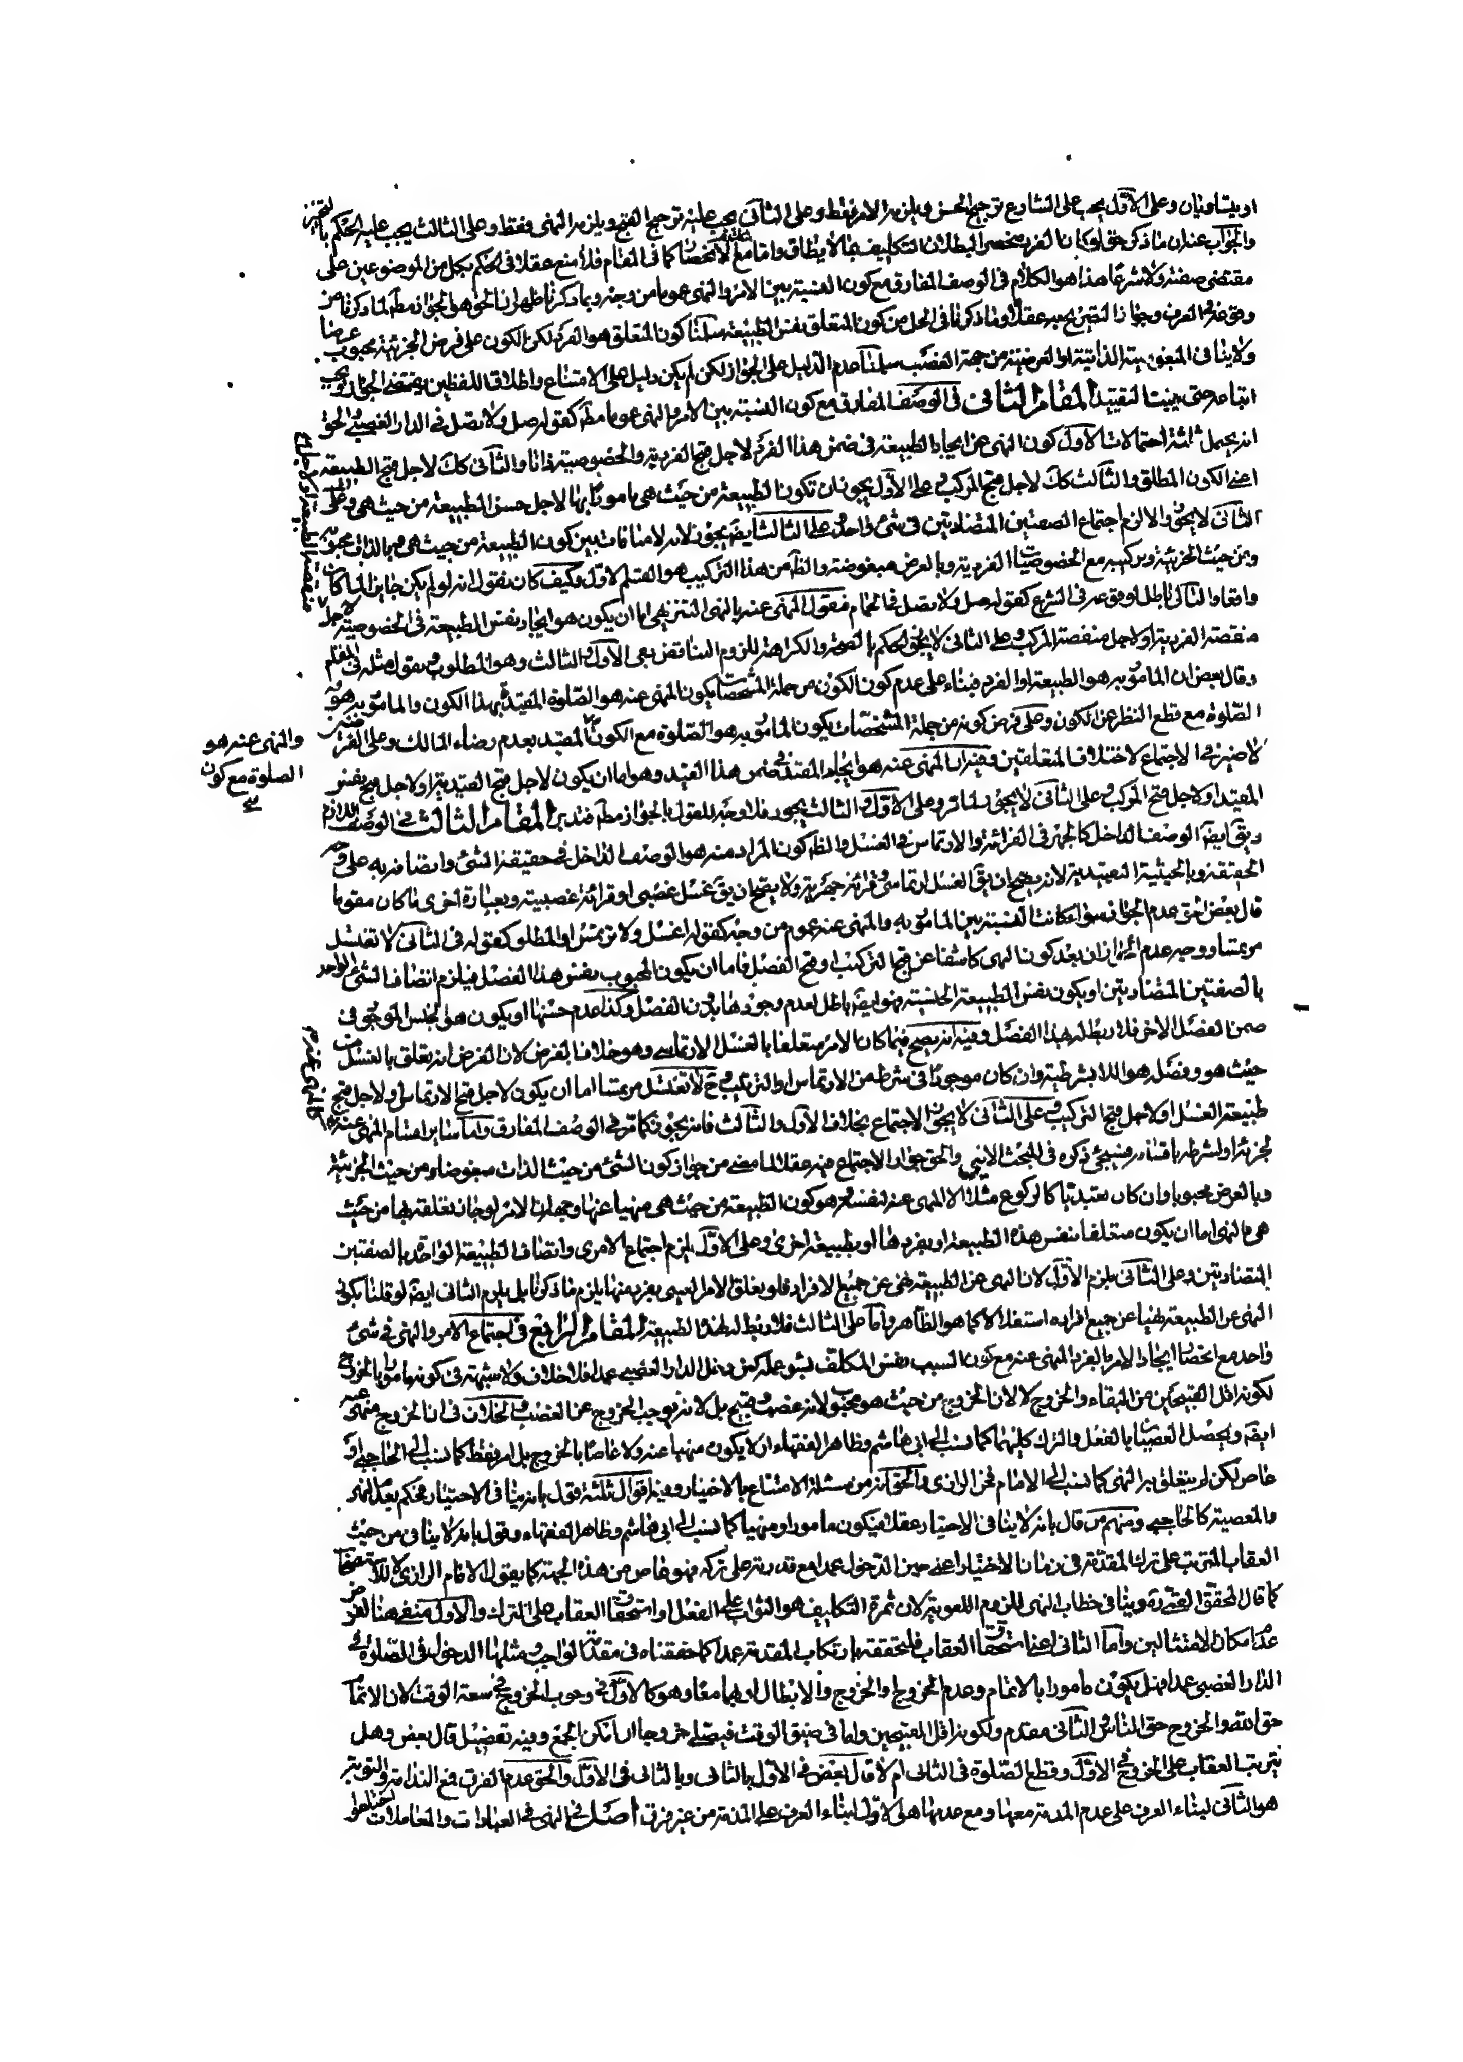 او يتساويان وعلى الاوّل يجب على الشارع ترجيح الحسن ويلزمه الامر فقط وعلى الثانى يجب عليه ترجيح القبح ويلزمه النهى فقط وعلى الثالث يجب عليه الحكم بالتخيير
والجواب عنه ان ما ذكر حق لو كان الفرد منحصرا لبطلان التكليف بما لا يطاق واما مع عدم الانحصار كما فى المقام فلا منع عقلا فى الحكم بكل من الموضوعين على
مقتضى صفته ولا شرعا هذا هو الكلام فى الوصف المفارق مع كون النسبة بين الامر والنهى عموما من وجه وبما ذكرنا ظهر ان الحق هو الجواز مطلقا لما ذكرنا من
وقوعه فى العرف وجواز التصريح به عقلا وما ذكرنا فى الحل من كون المتعلق نفس الطبيعة سلمنا كون المتعلق هو الفرد لكن الكون على فرض الجزئية محبوب عرضا
ولا ينافى المبغوضية الذاتية او العرضية من جهة الغصب سلمنا عدم الدليل على الجواز لكن لم يكن دليل على الامتناع واطلاق اللفظين يقتضى الجواز ويجب
اتباعه حتى يثبت التقييد المقام الثانى فى الوصف المفارق مع كون النسبة بين الامر والنهى عموما مطلقا كقوله صل ولا تصل فى الدار الغصبى والحق
انه يحتمل ثلثة احتمالات الاول كون النهى عن ايجاد الطبيعة فى ضمن هذا الفرد لاجل قبح الفردية والخصوصية ذاتا والثانى كك لاجل قبح الطبيعة
اعنى الكون المطلق والثالث كك لاجل قبح المركب فعلى الاول يجوز ان تكون الطبيعة من حيث هى مامورا بها لاجل حسن الطبيعة من حيث هى وعلى
الثانى لا يجوز والا لزم اجتماع الصفتين المتضادتين فى شئ واحد وعلى الثالث ايضا يجوز لانه لا منافات بين كون الطبيعة من حيث هى هى بالذات محبوبة
ومن حيث الجزئية وتركيبه مع الخصوصيات الفردية وبالعرض مبغوضة والظاهر من هذا التركيب هو القسم الاول وكيف كان نقول انه لو لم يكن جايزا لما كان
واقعا والتالى باطل لوقوعه فى الشرع كقوله صل ولا تصل فى الحمام فنقول المنهى عنه بالنهى التنزيهى اما ان يكون هو ايجاد نفس الطبيعة فى الخصوصية لاجل
منقصة الفردية او لاجل منقصة المركب وعلى الثانى لا يجوز الحكم بالصحة والكراهة للزوم التناقض بقى الاول والثالث وهو المطلوب ونقول مثله فى المقام
وقال بعض ان المامور به هو الطبيعة او الفرد فبناء على عدم كون الكون من جملة المشخصات يكون المنهى عنه هو الصلوة المقيدة بهذا الكون والمامور به هو
الصلوة مع قطع النظر عن الكون وعلى فرض كونه من جملة المشخصات يكون المامور به هو الصلوة مع الكون المقيد بعدم رضاء المالك وعلى الفرضين
لا ضير فى الاجتماع لاختلاف المتعلقين وفيه ان المنهى عنه هو ايجاد المقيد فى ضمن هذا القيد وهو اما ان يكون لاجل قبح القيدية او لاجل قبح نفس
المقيد او لاجل قبح المركب وعلى الثانى لا يجوز لما مر وعلى الاول والثالث يجوز فلا وجه للقول بالجواز مطلقا فتدبر المقام الثالث فى الوصف اللازم
وبقى ايضا الوصف الداخل كالجهر فى القرائة والارتماس فى الغسل والظاهر كون المراد منه هو الوصف الداخل فى حقيقة الشئ واتصافه به على وجه
الحقيقة وبالحيثية التقييدية لانه يصح ان يقال الغسل ارتماسى وقرائة جهرية ولا يصح ان يق غسل غصبى او قرائة غصبية وبعبارة اخرى ما كان مقوما
قال بعض الحق عدم الجواز سواء كانت النسبة بين المامور به والمنهى عنه عموم من وجه كقوله اغسل ولا ترتمس او المطلق كقوله فى الثانى لا تغتسل
مرتمسا ووجه عدم الجواز ان بعد كون النهى كاشفا عن قبح التركيب او قبح الفصل فاما ان يكون المحبوب نفس هذا الفصل فيلزم اتصاف الشئ الواحد
بالصفتين المتضادتين او يكون نفس الطبيعة الجنسية فهو ايضا باطل لعدم وجودها بدون الفصل وكذا عدم حسنها او يكون هو الجنس الموجود فى
ضمن الفصل الاخر فلا ربط له بهذا الفصل وفيه انه يصح فيما كان الامر متعلقا بالغسل الارتماسى وهو خلاف الفرض لان الفرض انه تعلق بالغسل من
حيث هو وفصله هو اللا بشرطية وان كان موجودا فى شرط من الارتماس او الترتيب وح لا تغتسل مرتمسا اما ان يكون لاجل قبح الارتماس او لاجل قبح
طبيعة الغسل او لاجل قبح التركيب وعلى الثانى لا يجوز الاجتماع بخلاف الاول والثالث فانه يجوز كما مر فى الوصف المفارق واما ساير اقسام المنهى عنه
لجزئه او لشرطه باقسامه فسيجئ ذكره فى المبحث الاتى والحق جواز الاجتماع فيه عقلا لما مضى من جواز كون الشئ من حيث الذات مبغوضا ومن حيث الجزئية
وبالعرض محبوبا وان كان تعبديا كالركوع مثلا الا المنهى عنه لنفسه وهو كون الطبيعة من حيث هى منهيا عنها وجهان الامر لو جاز تعلقه بها من حيث
هى بالنهى اما ان يكون متعلقا بنفس هذه الطبيعة او بفردها او بطبيعة اخرى وعلى الاول يلزم اجتماع الامرى واتصاف الطبيعة الواحدة بالصفتين
المتضادتين وعلى الثانى يلزم الاول لان النهى عن الطبيعة نهى عن جميع الافراد فلو تعلق الامر العينى بفرد منها يلزم ما ذكرنا بل يلزم الثانى ايضا لو قلنا بكون
النهى عن الطبيعة نهيا عن جميع افراده استقلالا كما هو الظاهر واما على الثالث فلا ربط له بهذه الطبيعة المقام الرابع فى اجتماع الامر والنهى فى شئ
واحد مع انحصار ايجاد الامر بالفرد المنهى عنه مع كون السبب نفس المكلف بسوء عمله كمن دخل الدار الغصبى عمدا فلا خلاف ولا شبهة فى كونه مامورا بالخروج
لكونه اقل القبيحين من البقاء والخروج لا لان الخروج من حيث هو محبوب لانه غصب وقبيح بل لانه يوجب الخروج عن الغصب والخلاف فى ان الخروج منهى عنه
ايضا ويحصل العصيان بالفعل والترك كليهما كما نسب الى ابى هاشم وظاهر الفقهاء او لا يكون منهيا عنه ولا عاصيا بالخروج بل امر فقط كما نسب الى الحاجبى او
عاص لكن لم يتعلق به النهى كما نسب الى الامام فخر الرازى والحق انه من مسئلة الامتناع بالاختيار وفيه اقوال ثلثة قول بانه ينافى الاختيار فحكم بعدم النهى
والمعصية كالحاجبى ومنهم من قال بانه لا ينافى الاختيار عقلا فيكون مامورا ومنهيا كما نسب الى ابى هاشم وظاهر الفقهاء وقول بانه لا ينافى من حيث
العقاب المترتب على ترك المقدمة فى زمان الاختيار اعنى حين الدخول عمدا مع قدرته على تركه فهو عاص من هذه الجهة كما يقول الامام الرازى للاستصحاب
كما قال المحقق القمى ره وينافى خطاب النهى للزوم اللغوية لان ثمرة التكليف هو الثواب على الفعل او استحقاق العقاب على الترك والاول منفى هنا لفرض
عدم امكان الامتثالين واما الثانى اعنى استحقاق العقاب فلتحققه بارتكاب المقدمة عمدا كما حققناه فى مقدمة الواجب ومثلها الدخول فى الصلوة فى
الدار الغصبى عمدا فهل يكون مامورا بالاتمام وعدم الخروج او الخروج والابطال او بهما معا وهو كالاول فى وجوب الخروج فى سعة الوقت لان الاتمام
حق الله والخروج حق الناس والثانى مقدم ولكونه اقل القبيحين واما فى ضيق الوقت فيصلى خروجا ان امكن الجمع وفيه تفصيل قال بعض وهل
يترتب العقاب على الخروج فى الاول وقطع الصلوة فى الثانى ام لا قال بعض فى الاول بالثانى وبالثانى فى الاول والحق عدم الفرق فمع الندامة والتوبة
هو الثانى لبناء العرف على عدم المذمة معها ومع عدمها هو الاول لبناء العرف على المذمة من غير فرق اصل فى النهى فى العبادات والمعاملات اختلفوا
والمنهى عنه هو
الصلوة مع كون